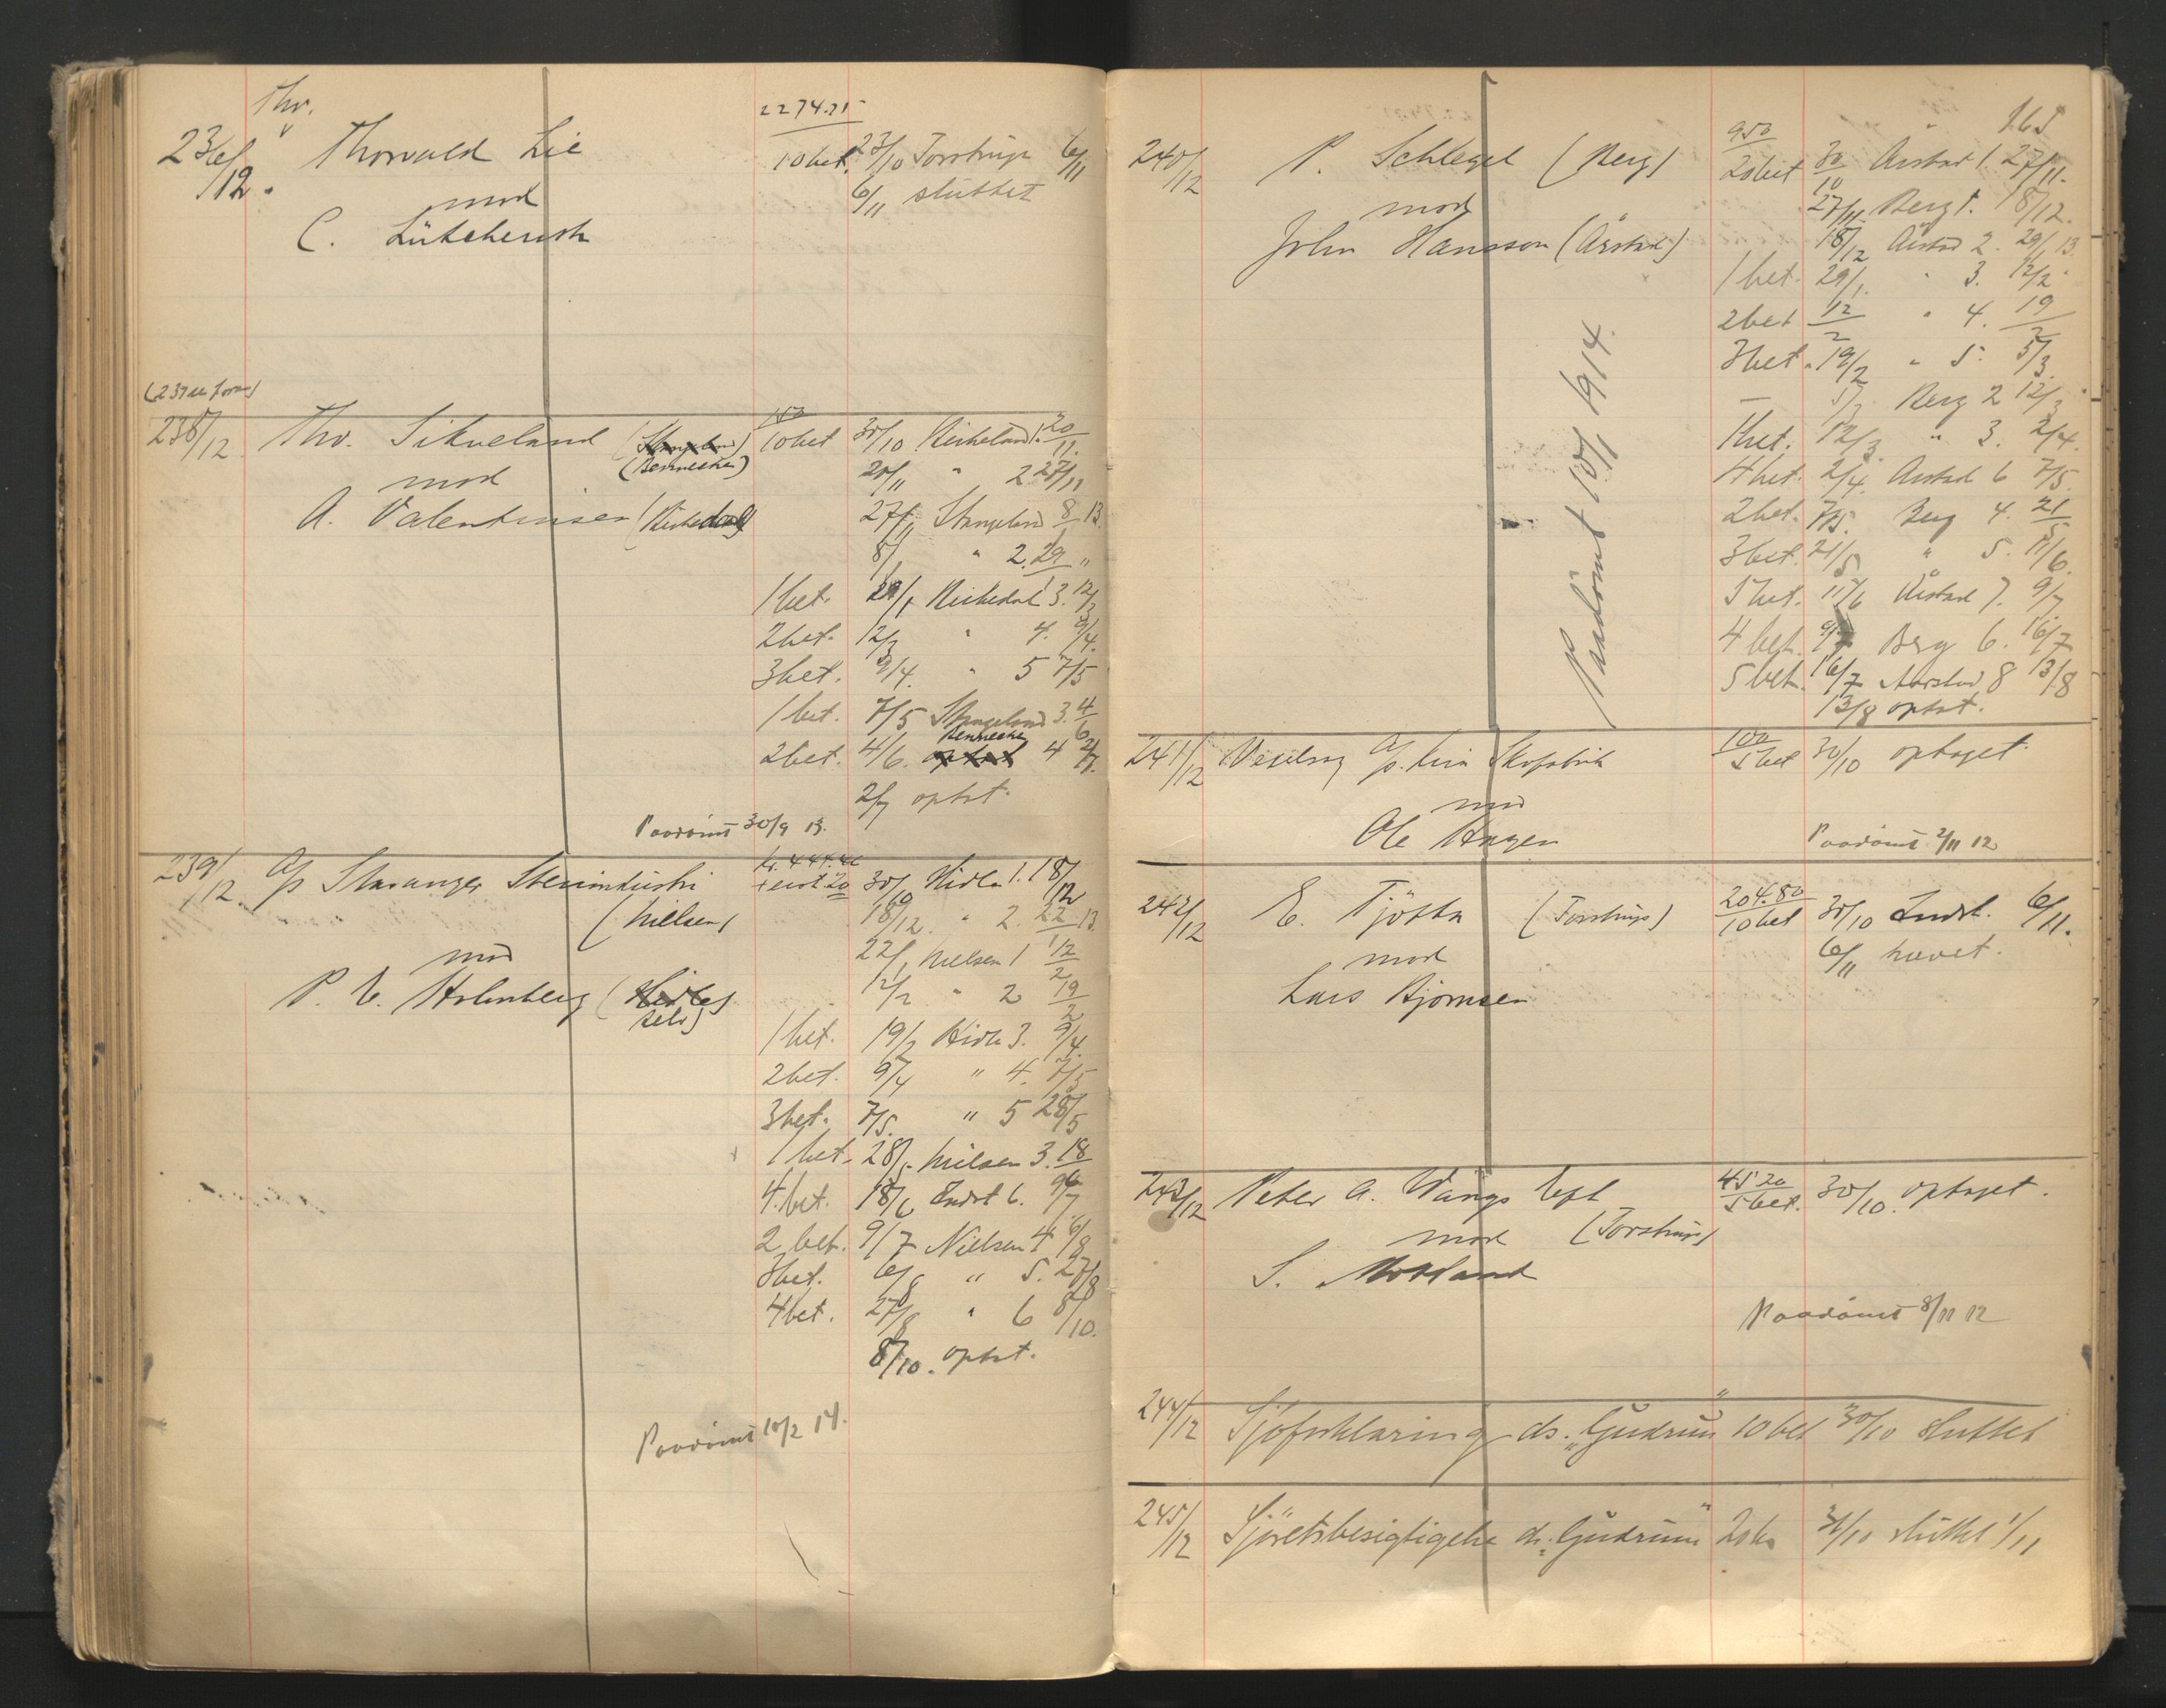 Thv.
236/12. Thorvald Lie
mod
C. Lütcherath
2274.25
10 bet. 23/10 Torstrup 6/11
6/11 sluttet
(237 se foran)
238/12 Thv. Sikveland (Stangeland)
(Bennecken)
mod
A. Valentinsen (Kirkedal)
150
10 bet 30/10 Kirkeland 1. 20/11.
20/11 " 2 27/11
27/11 Stangeland 8/1 13.
8/1 " 2. 29/1 "
1 bet. 29/1 Kirkedal 3. 12/3
2 bet. 12/3 " 4. 9/4.
3 bet. 9/4. " 5 7/5
1 bet. 7/5 Stangeland 3. 4/6
Bennecken
2 bet. 4/6. optat 4 2/7.
2/7 optat.
Paadömt 30/9 13.
239/12. A/s Stavanger Stenindustri
(Nielsen)
mod
P. E. Holmberg (Hidle)
selv)
kr. 444.46
30/10 Hidle 1. 18/12
18/12. " 2. 22/1 13.
22/1 Nielsen 1 12/2
12/2 " 2 19/2
1 bet. 19/2 Hidle 3. 9/4.
2 bet. 9/4 " 4. 7/5
3 bet. 7/5. " 5 28/5
1 bet. 28/5. Nielsen 3. 18/6
4. bet. 18/6 Indst 6. 9/7
2 bet. 9/7 Nielsen 4 6/8
3 bet. 6/8 " 5. 27/8
4 bet. 27/8 " 6 8/10.
8/10. optat.
Paadömt 10/2 14.
165
240/12 P. Schlegel (Berg)
mod
John Hansson (Årstad)
950
20 bet 30/10 Årstad 1. 27/11.
27/11. Berg 1. 18/12.
18/12 Årstad 2. 29/1 13.
1 bet. 29/1. " 3. 12/2
2 bet 12/2 " 4. 19/2
3 bet. 19/2 " 5. 5/3.
5/3 Berg 2 12/3
1 bet. 12/3. " 3. 2/4.
4 bet. 2/4. Årstad 6 7/5.
2 bet. 7/5. Berg 4. 21/5
3 bet. 21/5 " 5. 11/6.
5 bet. 11/6 Årstad 7. 9/7
4 bet. 9/7 Berg 6. 16/7
5 bet. 16/7 Aarstad 8 13/8
13/8 optat.
Paadömt 10/1 1914.
241/12 Vexelsag A/s. Lien Skofabrik
mod
Ole Hagen
100
5 bet 30/10 optaget.
Paadömt 2/11 12
242/12 E. Tjötta (Torstrup)
mod
Lars Bjørnsen
204.80
10 bet 30/10 Indst. 6/11.
6/11 hævet.
243/12 Peter A. Wangs Eftf
mod (Torstrup)
S. Motland
45 20
5 bet. 30/10. optaget.
Paadömt 8/11 12
244/12 Sjöforklaring ds. "Gudrun" 10 bet 30/10 sluttet
245/12 Sjöretsbesigtigelse ds. "Gudrun" 20 kr 31/10 sluttet 1/11